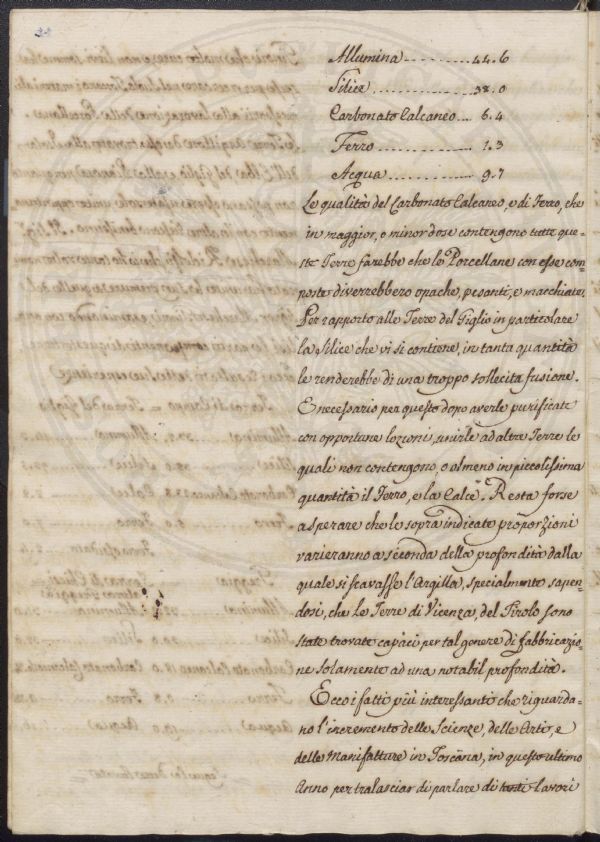 Allumina ---------- 44.6
Silice ............... 38.0
Carbonato Calcareo ... 6.4
Ferro ............... 1.3
Acqua ............... 9.7
Le qualità del Carbonato Calcareo, e di Ferro, che
in maggior, o minor dose contengono tutte que=
ste Terre farebbe che le Porcellane con esse com=
poste diverrebbero opache, pesanti, e macchiate.
Per rapporto alle Terre del Giglio in particolare
la Silice che vi si contiene, in tanta quantità
le renderebbe di una troppo sollecita fusione.
È necessario per questo dopo averle purificate
con opportune lozioni, unirle ad altre Terre le
quali non contengono, o almeno in piccolissima
quantità il Ferro, e la Calce. Resta forse
a sperare che le sopra indicate proporzioni
varieranno a seconda della profondità dalla
quale si scavasse l'Argilla, specialmente sapen=
dosi, che le Terre di Vicenza, del Tirolo sono
state trovate capaci per tal genere di fabbricazio=
ne solamente ad una notabil profondità.
Ecco i fatti più interessanti che riguarda=
no l'incremento delle Scienze, delle Arti, e
delle Manifatture in Toscana, in questo ultimo
Anno per tralasciar di parlare di tanti lavori